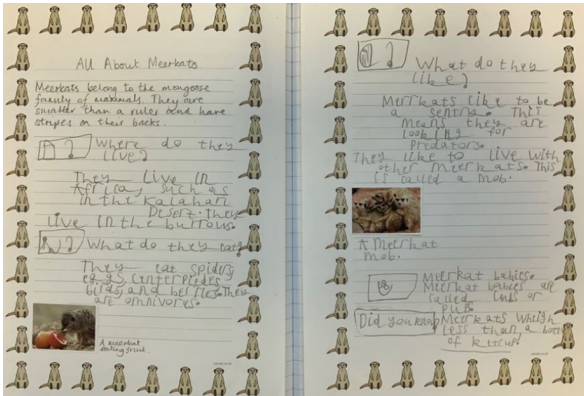 All About Meerkats
Meerkats belong to the mongoose
family of mammals. They are
smaller than a ruler and have
stripes on their backs.
Where do they
live?
They live in
Africa, such as
in the Kalahari
Desert. They
live in the burrows.
What do they eat?
They eat spiders
eg. Centerpiedes
birds and berries. They
are omnivores.
A meerkat
eating fruit.
What do they
like?
Meerkats like to be
a sentry. This
means they are
looking for
predators.
They like to live with
other meerkats. This
is called a mob.
A Meerkat
mob.
Meerkat babies.
Meerkat babies are
called cubs or
pups.
Did you know
Meerkats whigh
less than a bottle
of ketchup